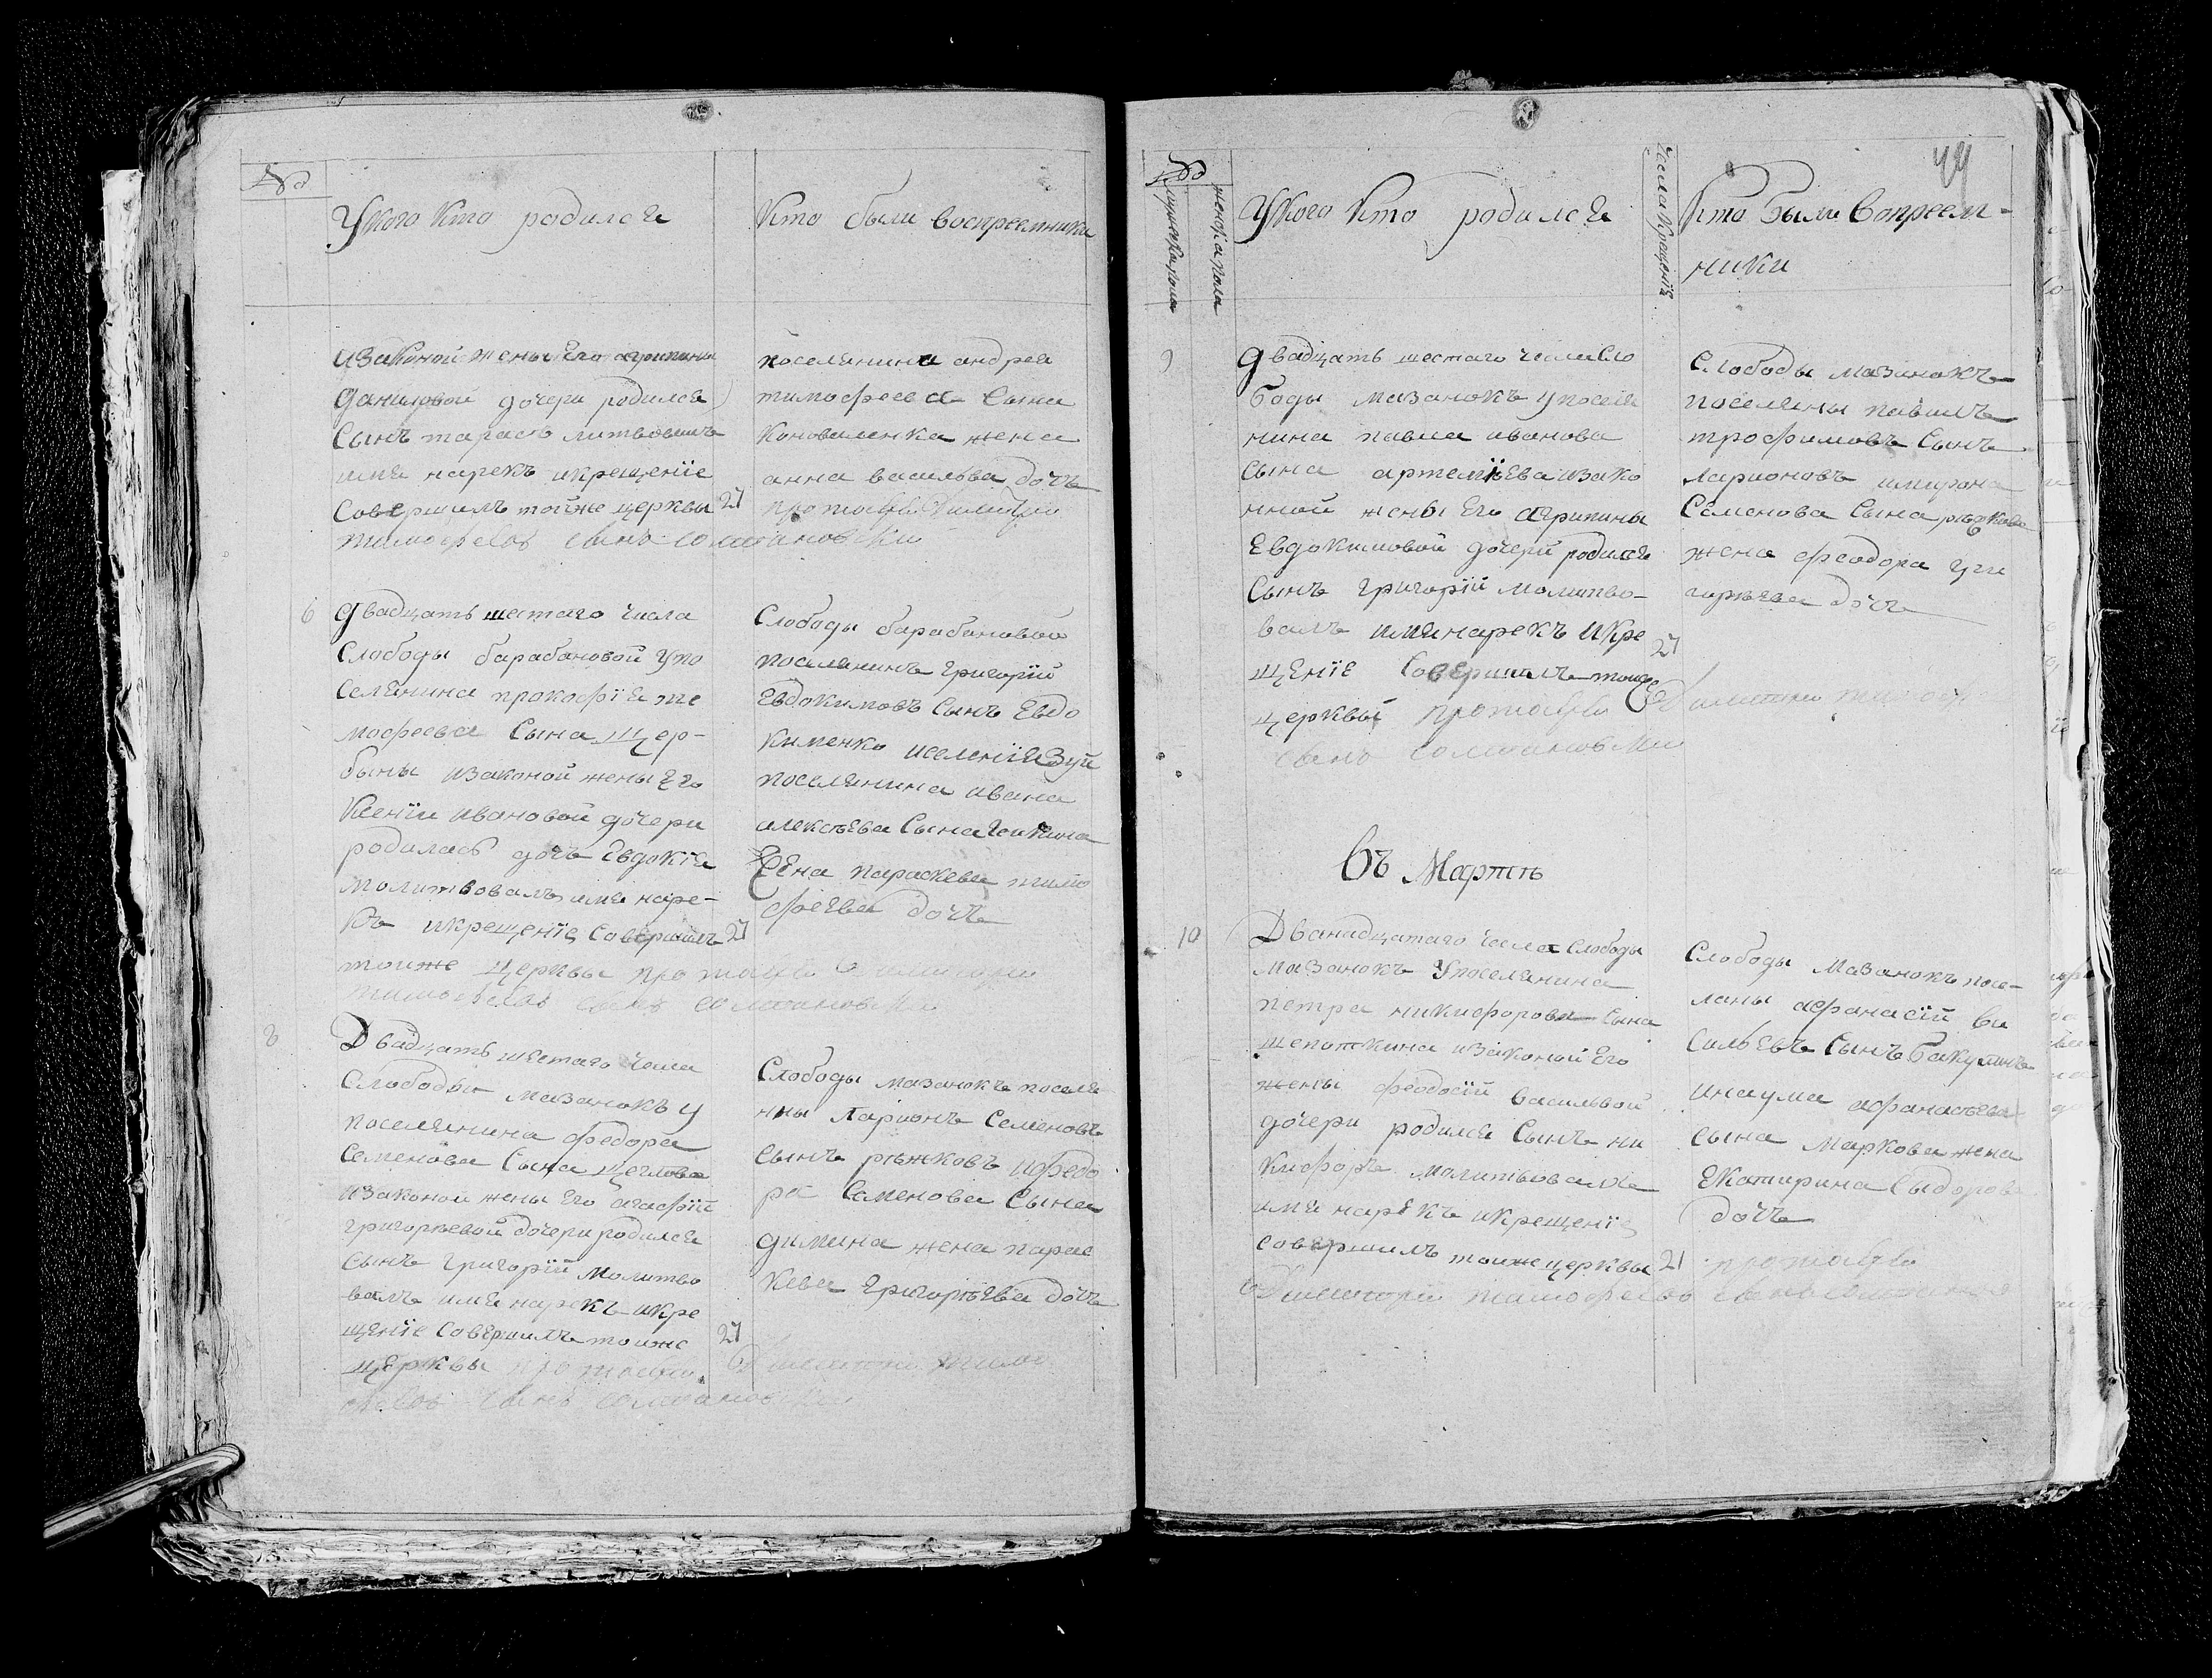 №
У кого кто родился
Кто были восприемники
изаконой жены Его агрипины
Даниловой дочери родился
Сынъ тарасъ литвовалъ
имя нарекъ икрещенїе
Совершилъ тойже церквы 27
тимофеевъ сынъ
поселянина андрея
тимофеева Сына
Коноваленка жена
анна васильва дочъ
протоиерей
6 Двадцать шестаго числа
Слободы барабановой упо
Селянина прокофїя ти
мофеева Сына Щер-
бины изаконой жены Его
Ксенїи ивановой дочери
родилась дочъ Евдокїя
Молитвовалъ имя наре-
къ икрещенїе Совершилъ 27
тойже Церквы
тимофеевъ сынъ
Слободы барабановой
поселянинъ григорїй
Евдокимовъ Сынъ Евдо
кименко иселенїя Зуи
поселянина ивана
алексѣева Сына
жена параскева тимо
феева дочъ
8 Двадцать шестаго числа
Слободы мазанокъ у
поселянина федора
Семенова Сына Щеглова
изаконой жены Его агафїи
григорѣевой дочери родился
Сынъ григорїй Молитво
валъ имя нарекъ икре
щенїе Совершилъ тойже 27
церквы
сынъ
Слободы мазанокъ поселя
нны Ларионъ Семеновъ
Сынъ рыжковъ ифедо
ра Семенова Сына
димина жена парас
кева григорѣева дочъ
49
№
мужеска пола
женска пола
У кого кто родился
Числа Крещенїя
Кто были Воприем-
ники
9 Двадцать шестаго числа Сло
боды мазанокъ упоселя
нина павла иванова
Сына артемїева изако
нной жены Его агрипины
Евдокимовой дочери родился
Сынъ григорїй Молитво-
валъ имя нарекъ икре
щенїе Совершилъ тойже 27
церквы
сынъ
Слободы мазанокъ
поселяны павилъ
трофимовъ Сынъ
ларионовъ имирона
Семенова Сына рыжкова
жена феодора гри
горѣева дочъ
Въ Мартѣ
10 Дванадцатаго числа Слободы
мазанокъ упоселянина
петра никифорова Сына
щепоткина изаконой Его
жены феодосїи васильвой
дочери родился Сынъ ни
кифоръ молитвовалъ
имя нарекъ икрещенїе
совершилъ тойже церквы 21
Слободы Мазанокъ посе-
ляны афанасїй ва
сильевъ Сынъ бакулинъ
инаума афанасѣева
сына Маркова жена
Екатирина Сыдорова
дочъ